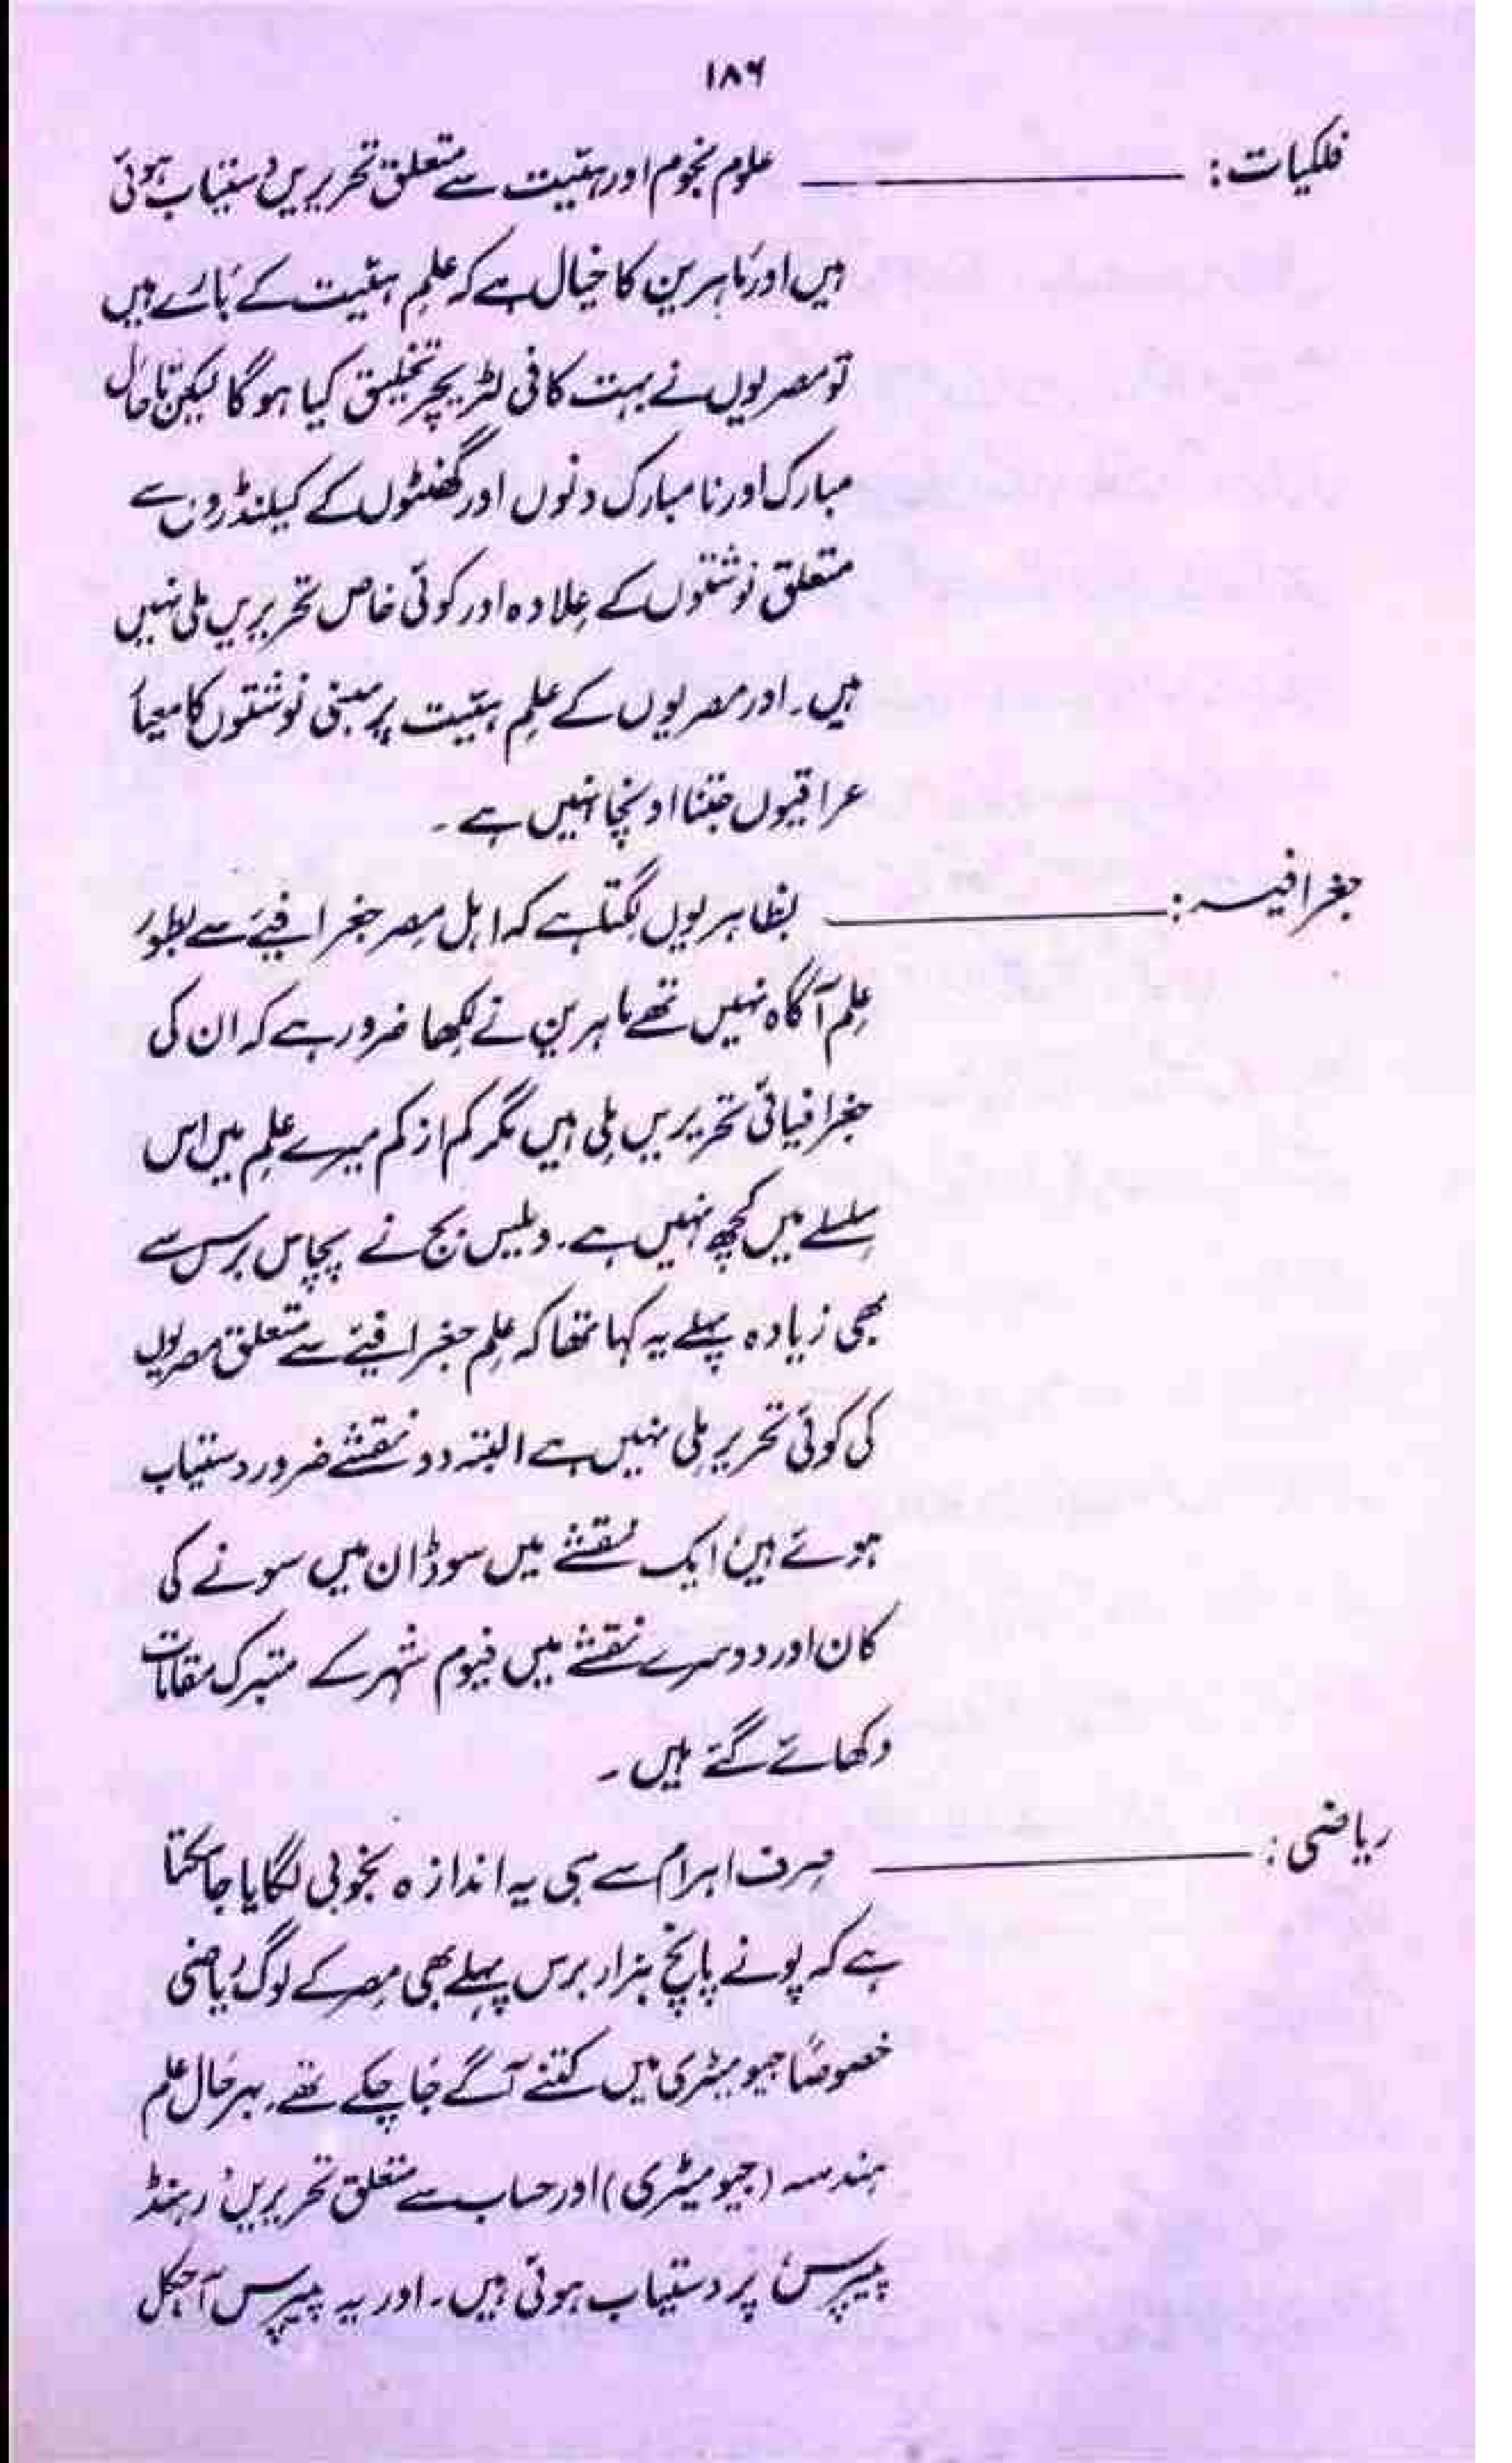 ۱۸۶
فلکیات: ـــــــــــــ علوم نجوم اور ہئیت سے متعلق تحریریں دستیاب ہوئی
ہیں اور ماہرین کا خیال ہے کہ علمِ ہئیت کے بارے میں
تو مصریوں نے بہت کافی لٹریچر تخلیق کیا ہو گا لیکن تا حال
مبارک اور نا مبارک دنوں اور گھنٹوں کے کیلنڈروں سے
متعلق نوشتوں کے علاوہ اور کوئی خاص تحریریں ملی نہیں
ہیں۔ اور مصریوں کے علمِ ہئیت پر مبنی نوشتوں کا معیار
عراقیوں جتنا اونچا نہیں ہے۔
جغرافیہ: ـــــــــــــ بظاہر یوں لگتا ہے کہ اہل مصر جغرافیئے سے بطور
علِم آگاہ نہیں تھے ماہرین نے لکھا ضرور ہے کہ ان کی
جغرافیائی تحریریں ملی ہیں مگر کم از کم میرے علِم میں اس
سِلسلے میں کچھ نہیں ہے۔ ویلیس بج نے پچاس برس سے
بھی زیادہ پہلے یہ کہا تھا کہ علِم جغرافیئے سے متعلق مصریوں
کی کوئی تحریر مِلی نہیں ہے البتہ دو نقشے ضرور دستیاب
ہوئے ہیں ایک نقشے میں سوڈان میں سونے کی
کان اور دوسرے نقشے میں فیوم شہر کے متبرک مقامات
دکھائے گئے ہیں۔
ریاضی: ـــــــــــــ صِرف اہرام سے ہی یہ اندازہ بخوبی لگایا جا سکتا
ہے کہ پونے پانچ ہزار برس پہلے بھی مِصر کے لوگ ریاضی
خصوصاً جیومیٹری میں کتنے آگے جا چکے تھے۔ بہر حال علم
ہندسہ (جیومیٹری) اور حساب سے متعلق تحریریں "رہنڈ
پیپرس" پر دستیاب ہوئی ہیں۔ اور یہ پیپرس آجکل